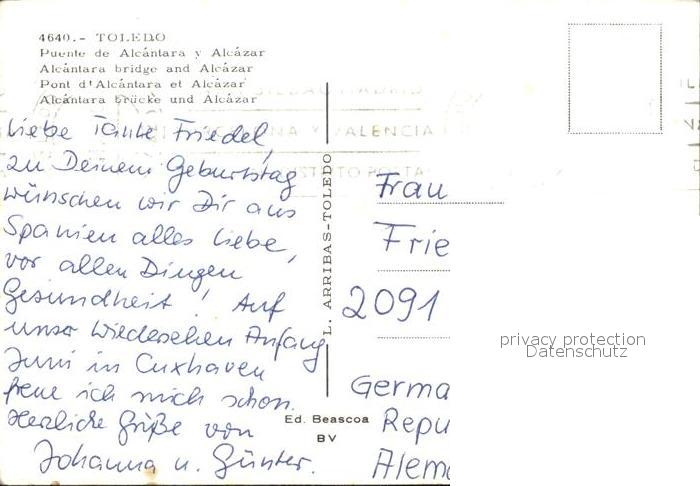 4640.- TOLEDO
Puente de Alcántara y Alcázar
Alcántara bridge and Alcázar
Pont d'Alcántara et Alcázar
Alcántara brücke und Alcázar
BILBAO MADRID
Y VALENCIA
Liebe Tante Friedel,
zu Deinem Geburtstag
wünschen wir Dir aus
Spanien alles Liebe,
vor allen Dingen
Gesundheit! Auf
unser Wiedersehen Anfang
Juni in Cuxhaven
freue ich mich schon.
Herzliche Grüße von
Johanna u. Günter.
L. ARRIBAS-TOLEDO
Ed. Beascoa
BV
Frau
Frie
2091
Germa
Repu
Alem
privacy protection
Datenschutz